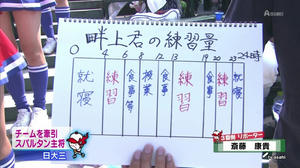 畔上君の練習量
0 4 6 8 12 13 19 20 23 24時
就寝
練習
食事等
授業
食事
練習
食事
練習
就寝
チームを牽引
スパルタン主将
日大三
三塁側 リポーター
斎藤 康貴
tv asahi